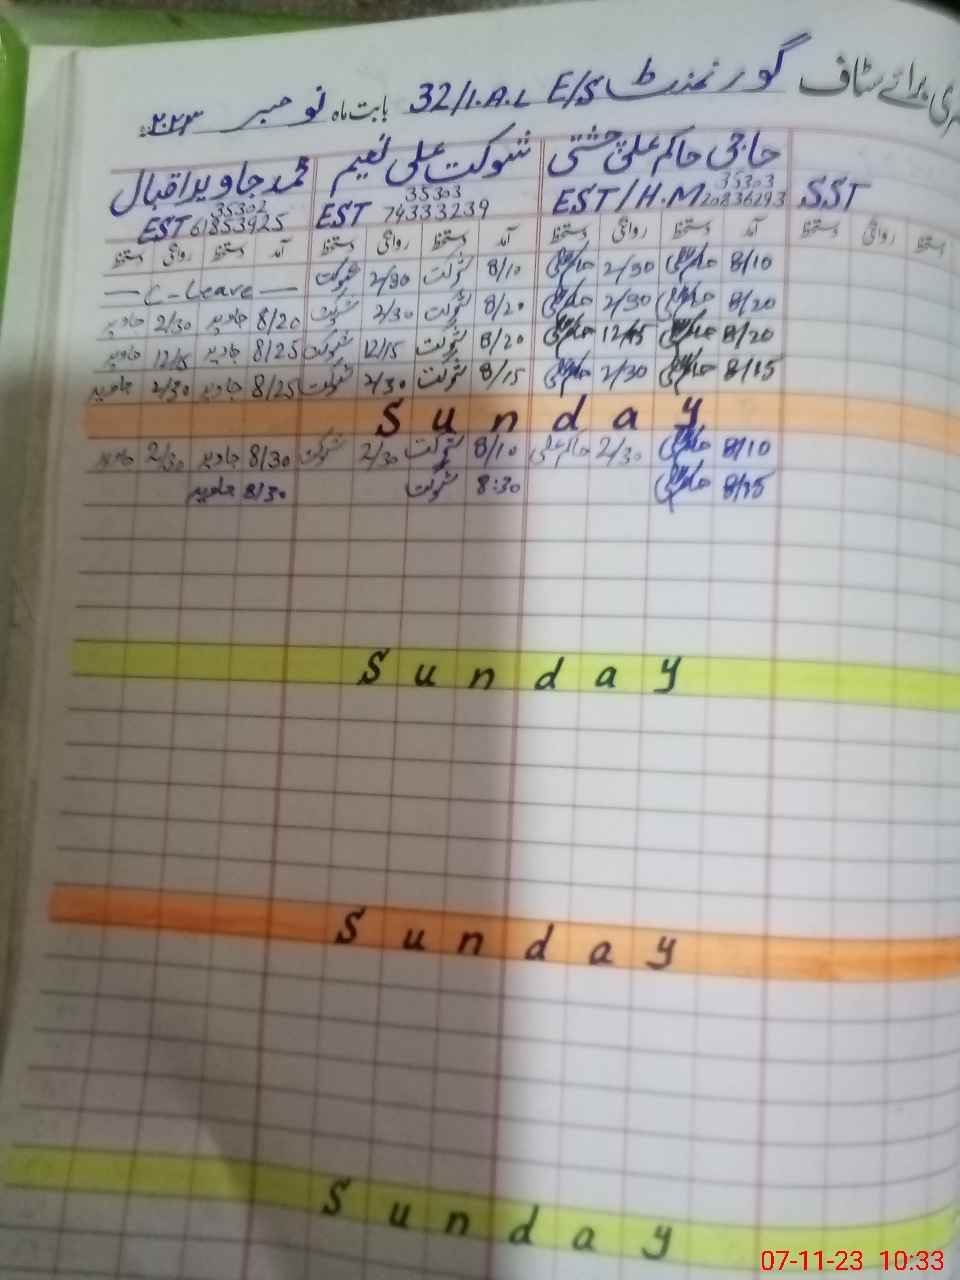 ری برائے سٹاف گورنمنٹ E/S 32/1.A.L بابت ماہ نومبر ۲۰۲۳ء
حاجی حاکم علی چشتی شوکت علی نعیم محمد جاوید اقبال
SST EST/H.M 35303 20836293 EST 35303 74333239 EST 35302 61853925
دستخط روانگی دستخط آمد دستخط روانگی دستخط آمد دستخط روانگی دستخط آمد دستخط روانگی دستخط
8/10 2/30 8/10 شوکت 2/30 شوکت — C-Leave —
8/20 2/30 8/20 شوکت 2/30 شوکت 8/20 جاوید 2/30 جاوید
8/20 12/15 8/20 شوکت 12/15 شوکت 8/25 جاوید 12/15 جاوید
8/15 2/30 8/15 شوکت 2/30 شوکت 8/25 جاوید 2/30 جاوید
Sunday
8/10 2/30 حاکم علی 8/10 شوکت 2/30 شوکت 8/30 جاوید 2/30 جاوید
8/15 8:30 شوکت 8/30 جاوید
Sunday
Sunday
Sunday
07-11-23 10:33